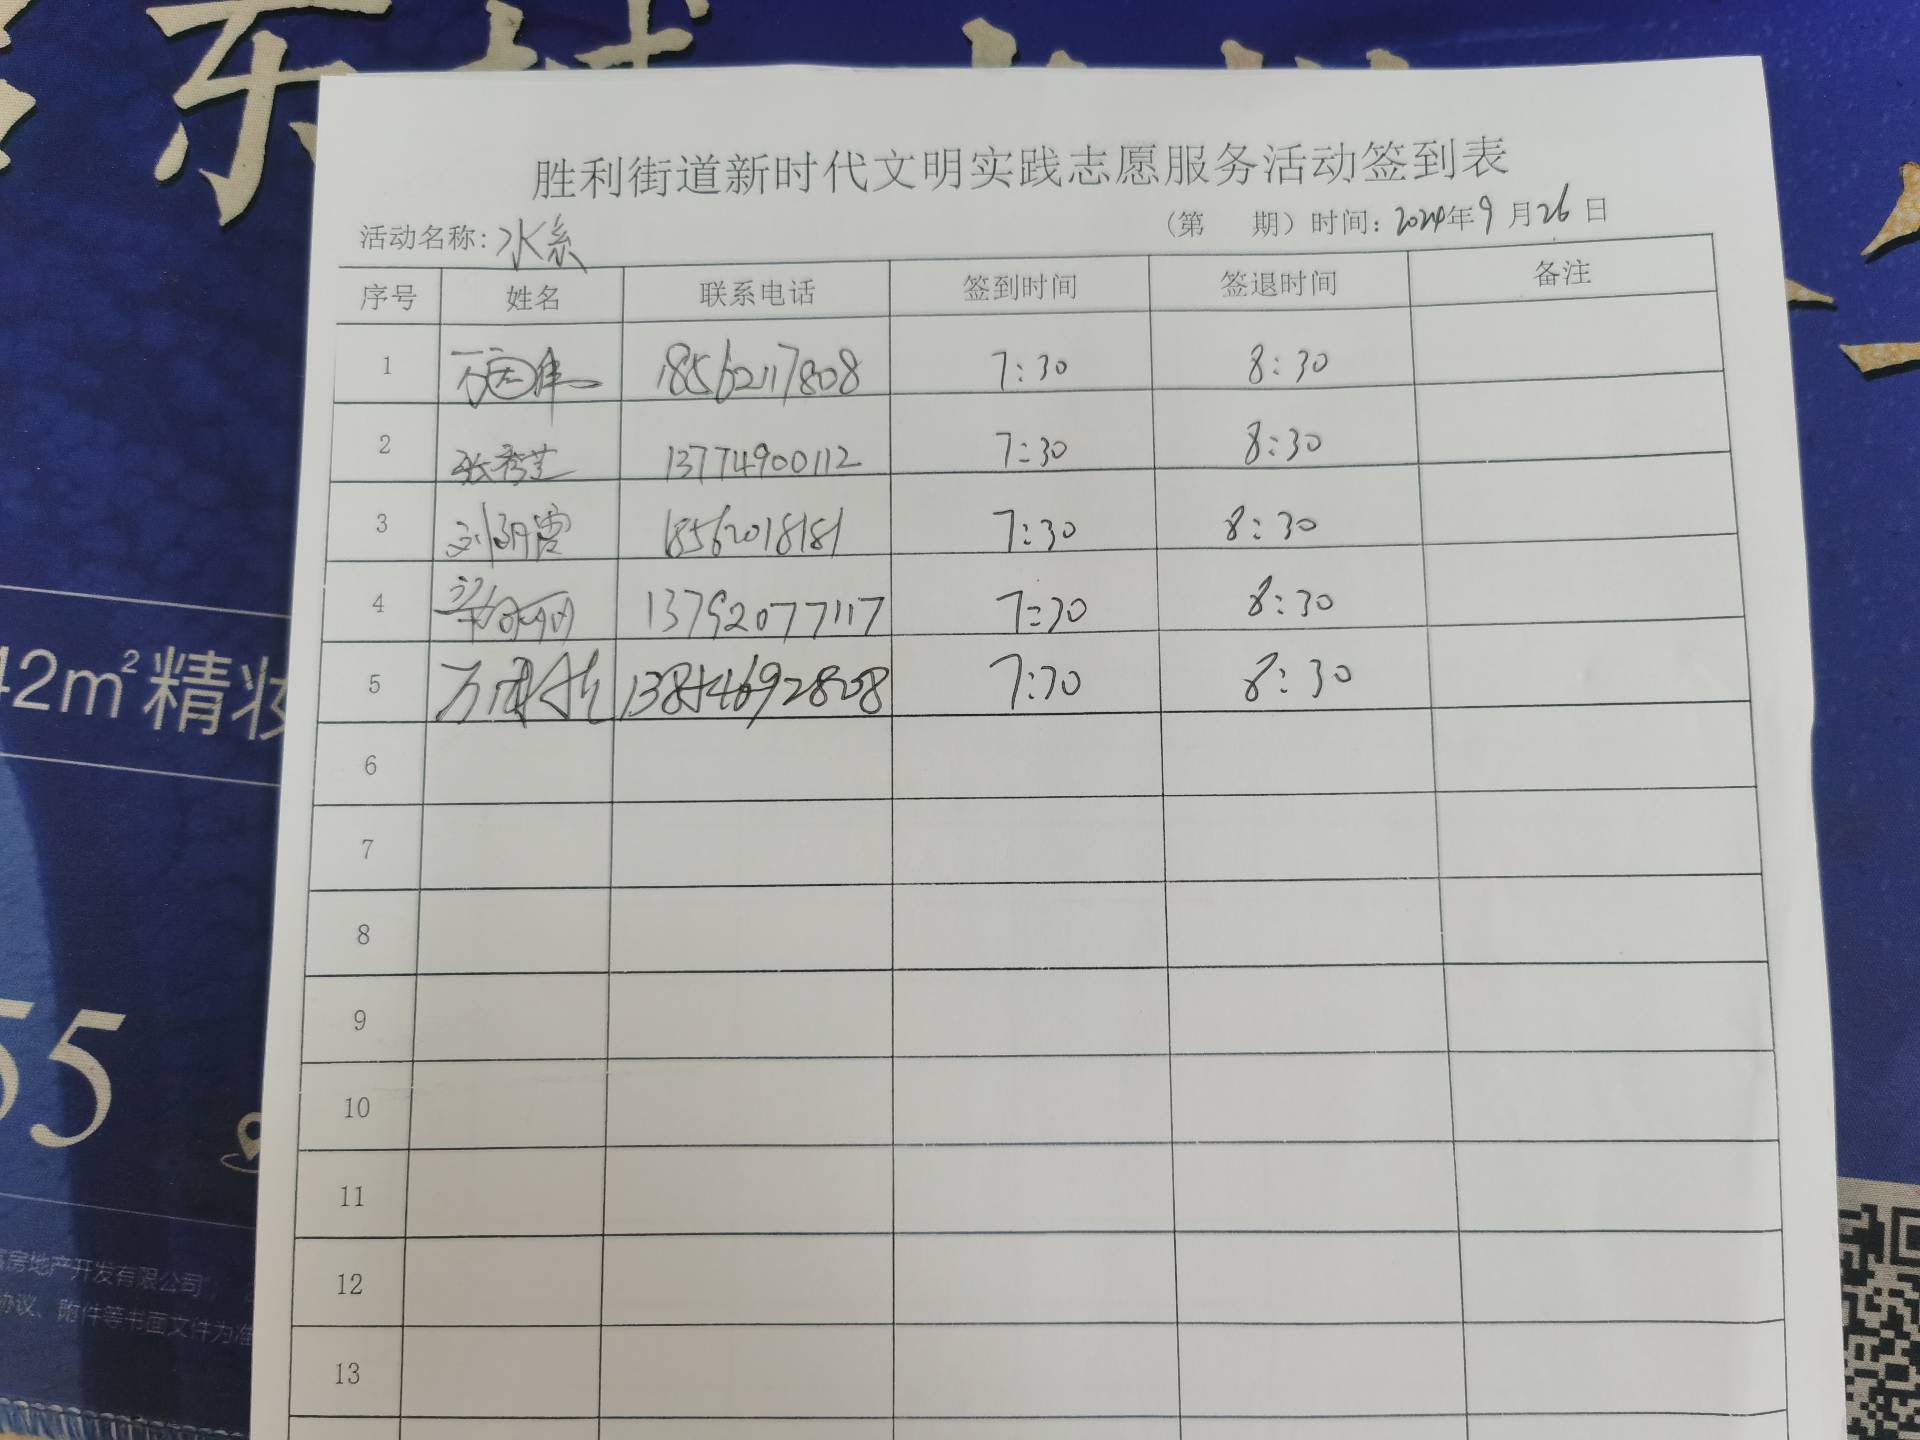 东
胜利街道新时代文明实践志愿服务活动签到表
活动名称: 水系 (第 期) 时间: 2024年9月26日
序号 姓名 联系电话 签到时间 签退时间 备注
1 18562117808 7:30 8:30
2 张秀芝 13774900112 7:30 8:30
3 刘明霞 18562018181 7:30 8:30
4 13792077117 7:30 8:30
5 13854692808 7:30 8:30
6
7
8
9
10
11
12
13
42m²精妆
55
房地产开发有限公司
协议、附件等书面文件为准